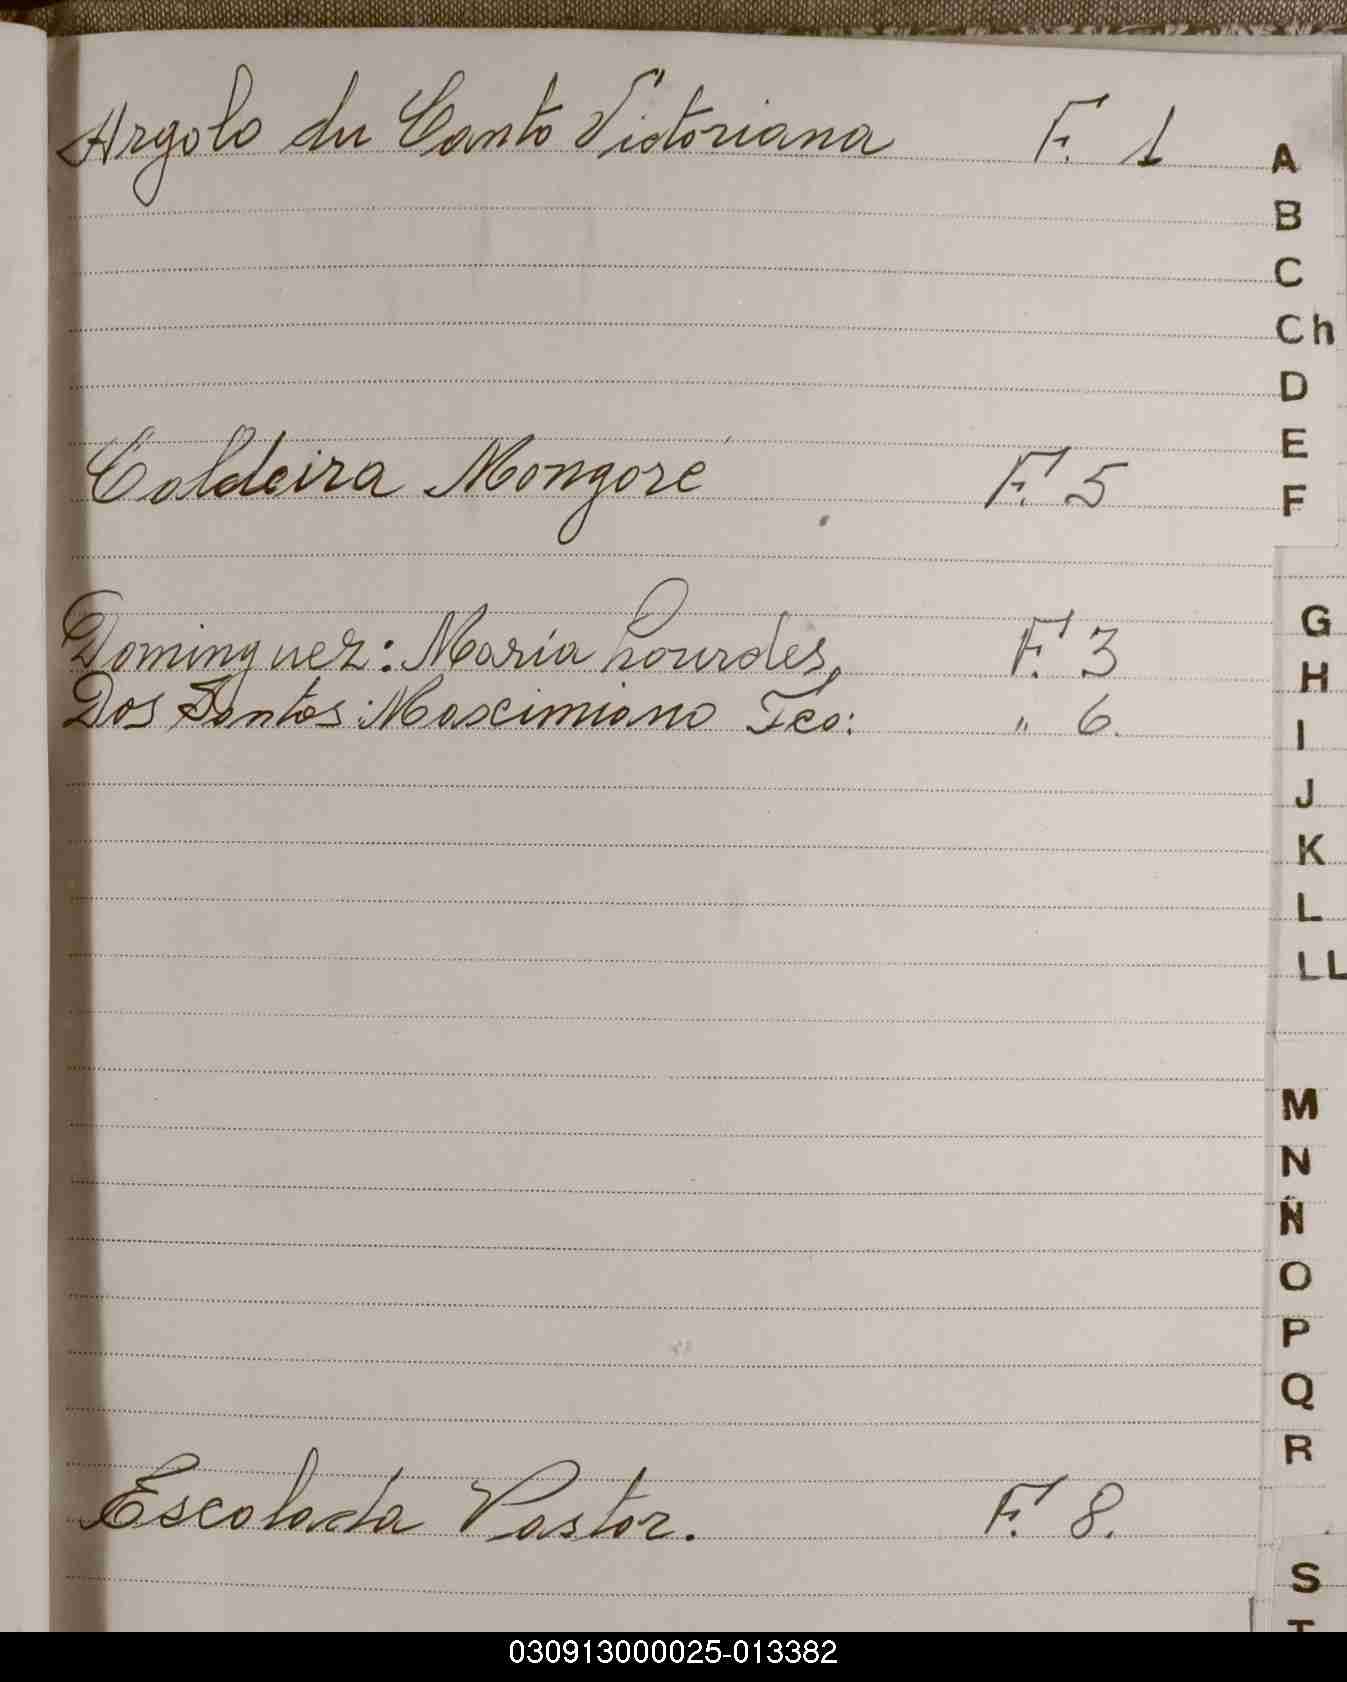 Argolo du Canto Victoriana F. 1
Caldeira Mongore F. 5
Dominguez: María Lourdes, F. 3
Dos Santos: Maximiano Fco: " 6.
Escolada Pastor. F. 8.
A
B
C
Ch
D
E
F
G
H
I
J
K
L
LL
M
N
Ñ
O
P
Q
R
S
T
030913000025-013382